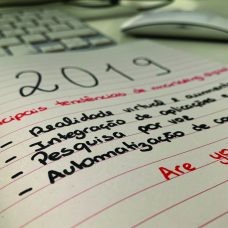 2019
principais tendências de marketing digital
- Realidade virtual e aumentada
- Integração de aplicações e
- Pesquisa por voz
- Automatização de
Are